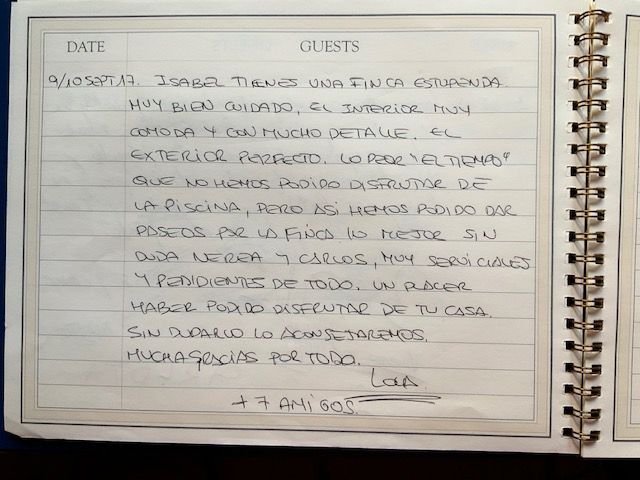 DATE GUESTS
9/10 SEPT 17. ISABEL TIENES UNA FINCA ESTUPENDA.
MUY BIEN CUIDADO, EL INTERIOR MUY
COMODA Y CON MUCHO DETALLE. EL
EXTERIOR PERFECTO. LO PEOR "EL TIEMPO"
QUE NO HEMOS PODIDO DISFRUTAR DE
LA PISCINA, PERO ASI HEMOS PODIDO DAR
PASEOS POR LA FINCA. LO MEJOR SIN
DUDA NEREA Y CARLOS, MUY SERVICIALES
Y PENDIDIENTES DE TODO. UN PLACER
HABER PODIDO DISFRUTAR DE TU CASA.
SIN DUDARLO LO ACONSEJAREMOS.
MUCHA GRACIAS POR TODO.
+ 7 AMIGOS.